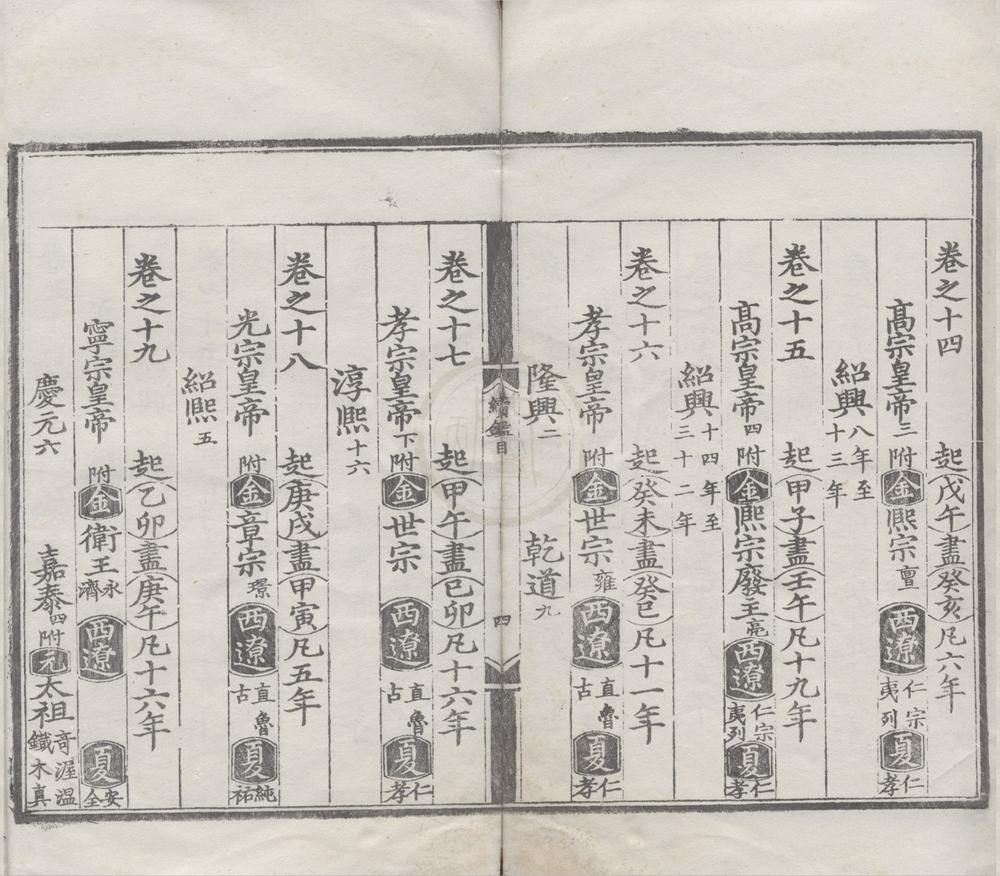 卷之十四　起戊午盡癸亥凡六年
高宗皇帝三　附金熙宗亶　西遼仁宗夷列　夏仁孝
紹興八年至十三年
卷之十五　起甲子盡壬午凡十九年
高宗皇帝四　附金熙宗廢王亮　西遼仁宗夷列　夏仁孝
紹興十四年至三十二年
卷之十六　起癸未盡癸巳凡十一年
孝宗皇帝　附金世宗雍　西遼直魯古　夏仁孝
隆興二　乾道九
續鑑目　四
卷之十七　起甲午盡已卯凡十六年
孝宗皇帝下　附金世宗　西遼直魯古　夏仁孝
淳熙十六
卷之十八　起庚戌盡甲寅凡五年
光宗皇帝　附金章宗璟　西遼直魯古　夏純祐
紹熙五
卷之十九　起乙卯盡庚午凡十六年
寧宗皇帝　附金衛王永濟　西遼　夏安全
慶元六　嘉泰四　附元太祖奇渥溫鐵木真